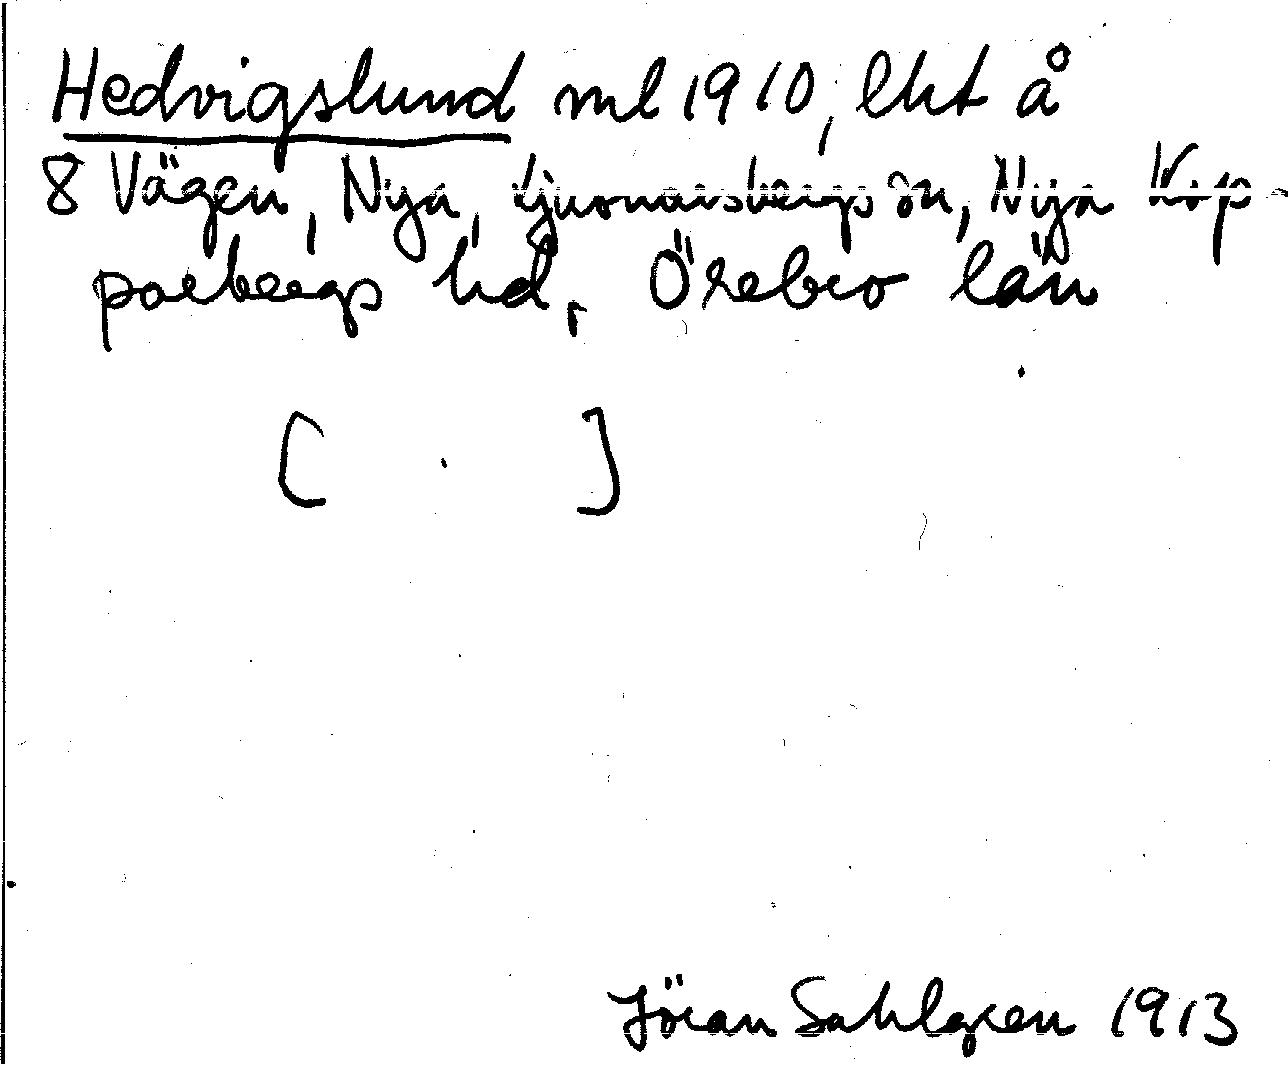 Hedvigslund ml 1910, lht å
8 Vägen, Nya, Ljusnarsbergs sn, Nya Kop-
parbergs hd, Örebro län
[ ]
Jöran Sahlgren 1913